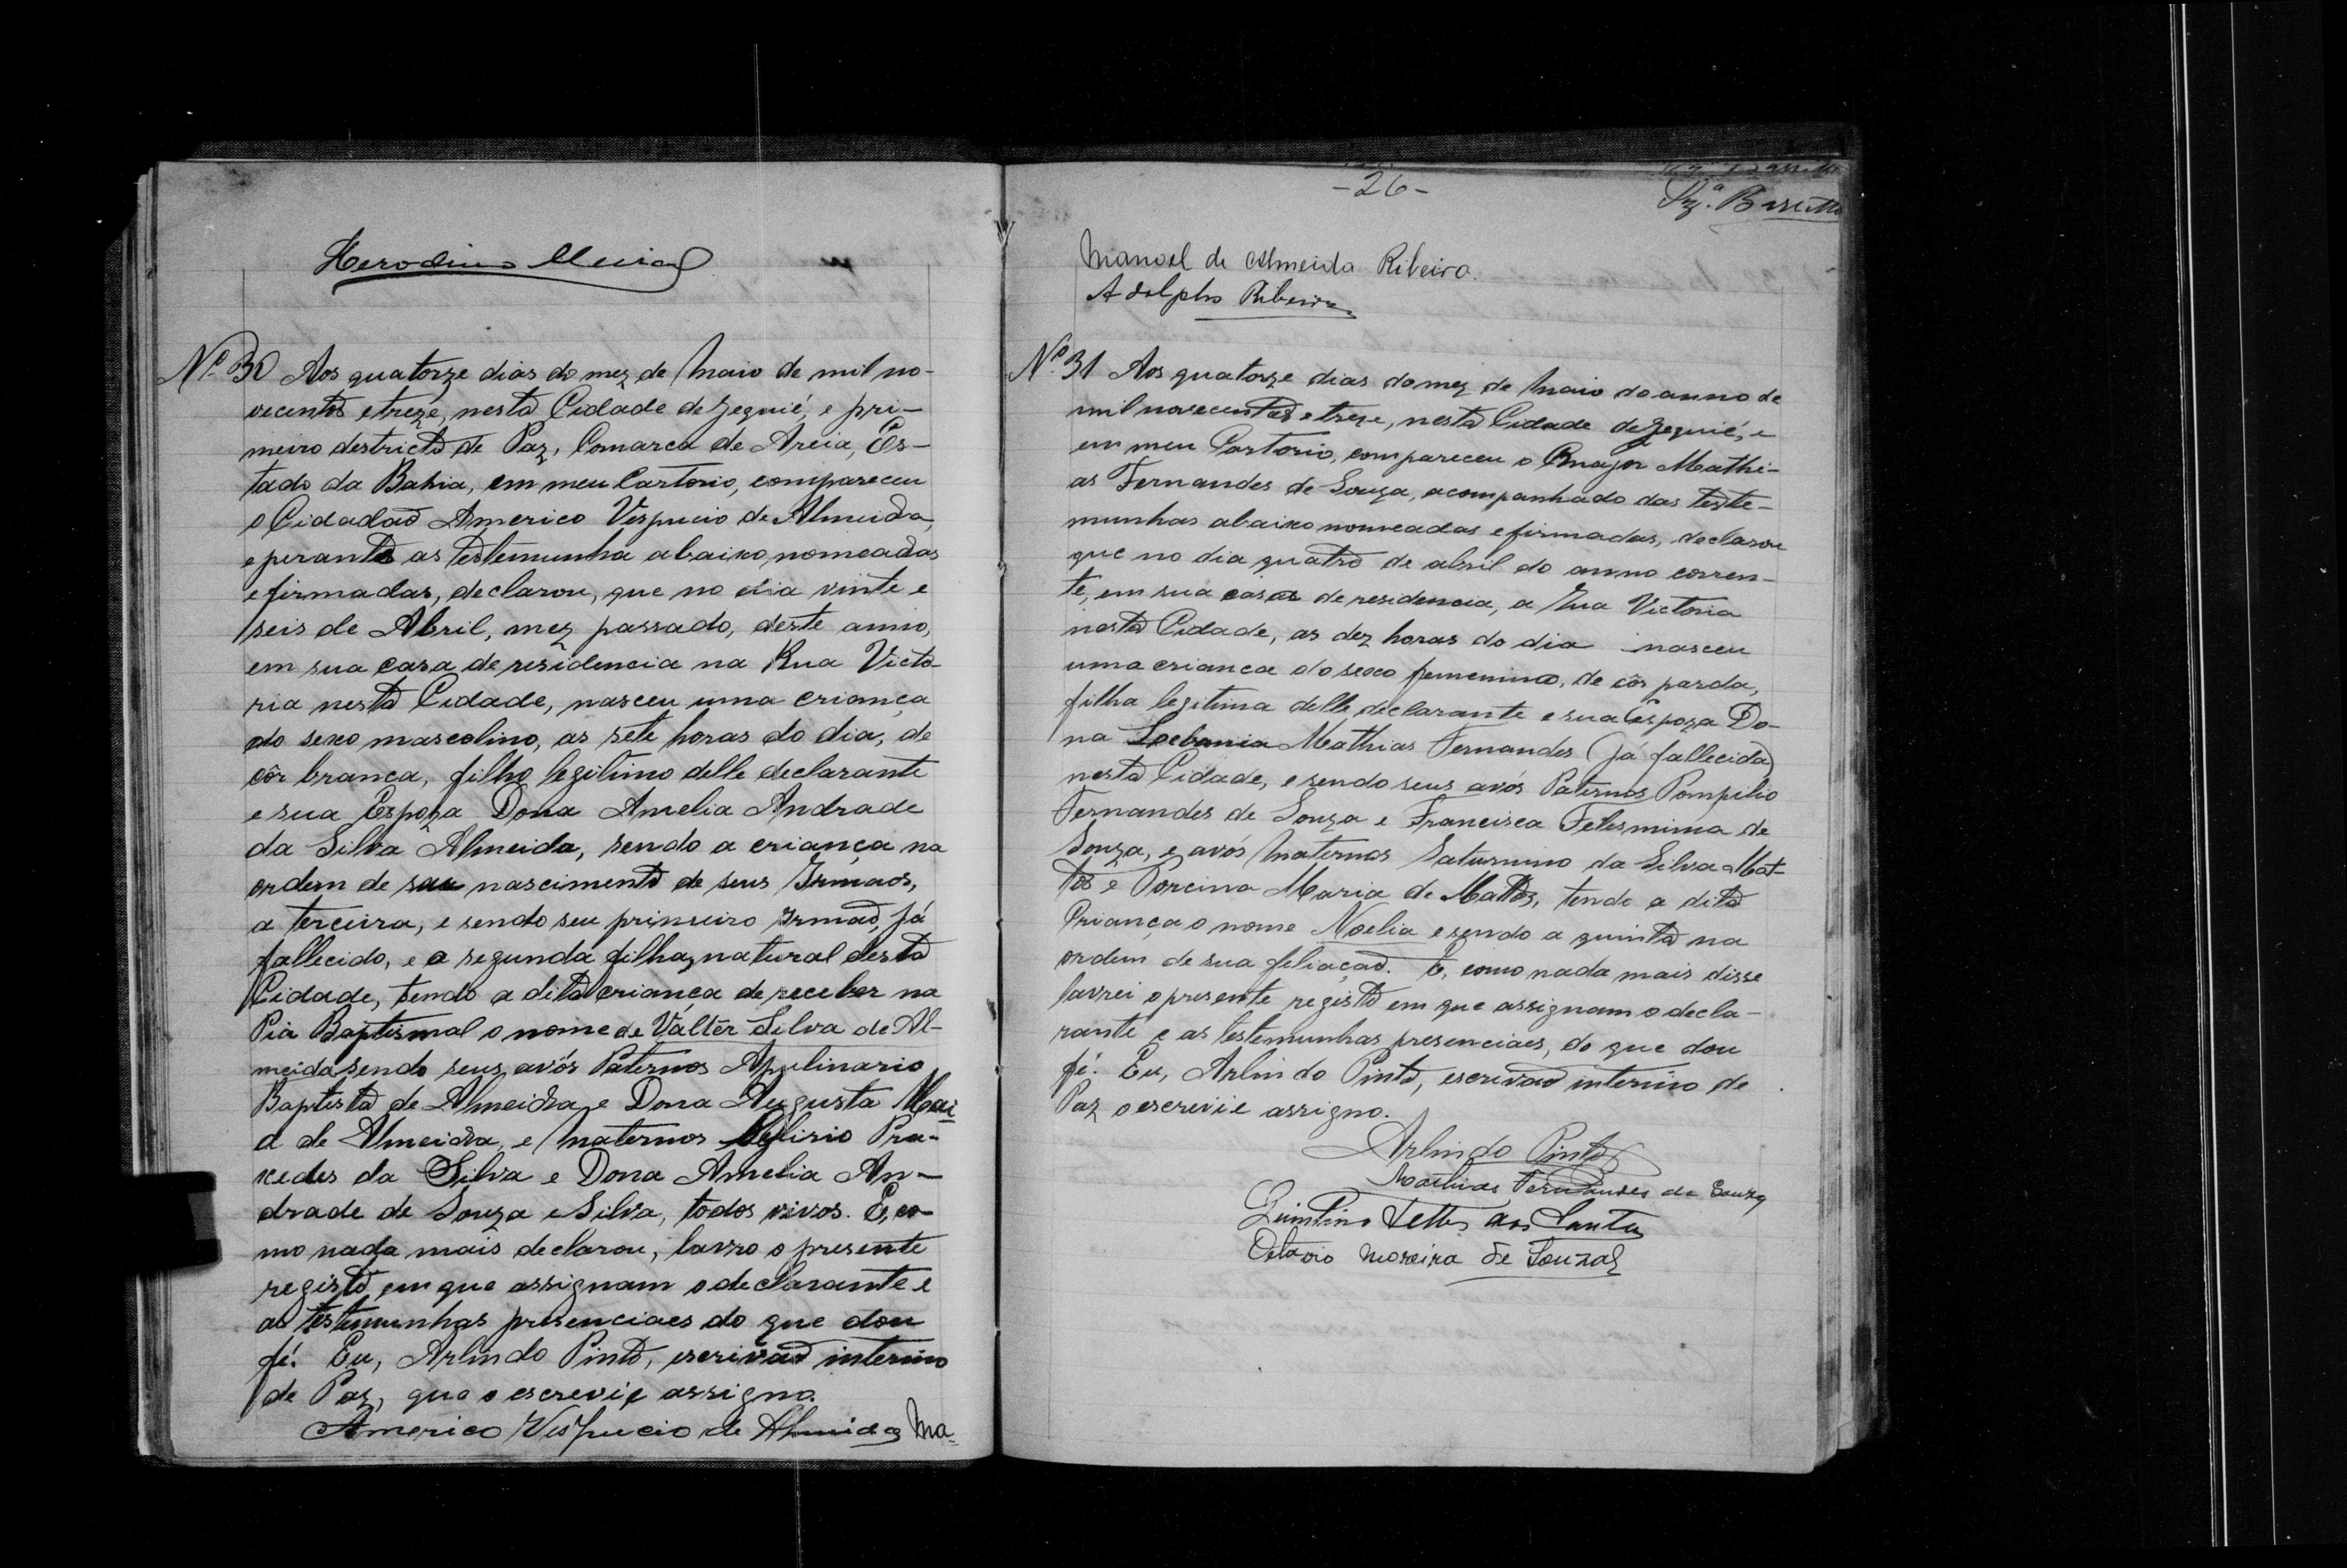 Herodino
Nº 30 Aos quatorze dias do mez de Maio de mil no-
vecentos e treze, nesta Cidade de Jequié, e pri-
meiro destricto de Paz, Comarca de Areia, Es-
tado da Bahia, em meu Cartorio, compareceu
o Cidadaõ Americo Vespucio de Almeida,
e perante as testemunha abaixo, nomeadas
e firmadas, declarou, que no dia vinte e
seis de Abril, mez passado, deste anno,
em sua casa de residencia na Rua Victo-
ria nesta Cidade, nasceu uma criança
do sexo mascolino, as sete horas do dia, de
côr branca, filho legitimo delle declarante
e sua Espoza Dona Amelia Andrade
da Silva Almeida, sendo a criança na
ordem de seu nascimento de seus Irmaos,
a terceira, e sendo seu primeiro Irmaõ, já
fallecido, e a segunda filha, natural desta
Cidade, tendo a dita criança de receber na
Pia Baptismal o nome de Válter Silva de Al-
meida sendo seus avós Paternos Apulinario
Baptista de Almeida e Dona Augusta Mai
a de Almeida, e Maternos Pra-
xedes da Silva e Dona Amelia An-
drade de Souza e Silva, todos vivos. E, co-
mo nada mais declarou, lavro o presente
registo em que assignam o declarante e
as testemunhas presenciaes do que dou
fé. Eu, Arlindo Pinto, escrivaõ interino
de Paz, que o escrevi e assigno.
Americo Vespucio de Almeida Ma-
-26-
Manoel de Almeida Ribeiro.
Adolpho Ribeiro
Nº 31 Aos quatorze dias do mez de Maio do anno de
mil novecentos e treze, nesta Cidade de Jequié, e
em meu Cartorio, compareceu o Major Mathi-
as Fernandes de Souza, acompanhado das teste-
munhas abaixo nomeadas e firmadas, declarou
que no dia quatro de abril do anno corren-
te, em sua casa de residencia, a Rua Victoria
nesta Cidade, as dez horas do dia nasceu
uma crianca do sexo femenino, de côr parda,
filha legitima delle declarante e sua Espoza Do-
na Mathias Fernandes (já fallecida)
nesta Cidade, e sendo seus avós Paternos Pompilio
Fernandes de Souza e Francisca Felismina de
Souza, e avós Maternos Saturnino da Silva Mat-
tos e Porcina Maria de Mattos, tendo a dita
Criança o nome Noelia e sendo a quinta na
ordem de sua filiaçaõ. E, como nada mais disse
lavrei o presente registo em que assignam o decla-
rante e as testemunhas presenciaes, do que dou
fé. Eu, Arlindo Pinto, escrivaõ interino de
Paz o escrevi e assigno.
Arlindo Pinto
Mathias Fernandes de Souza
Quintino dos Santos
Octavio Moreira de Souza